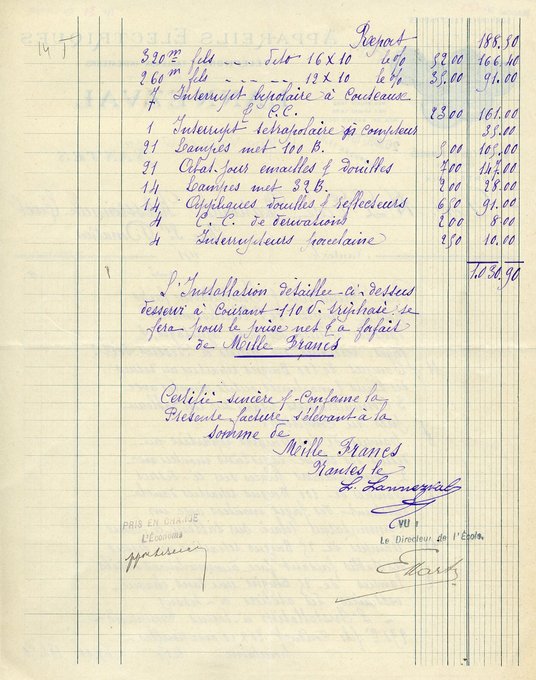 Report 188.50
320 m fils --- dito 16 x 10 le % 52.00 166.40
260 m fils --- --- 12 x 10 le % 35.00 91.00
7 Interrupt bipolaire à Couteaux
& C.C. 23.00 161.00
1 Interrupt tetrapolaire compteur 35.00
21 Lampes met 100 B. 5.00 105.00
21 Abat-jour emailles & douilles 7.00 147.00
14 Lampes met 32 B. 2.00 28.00
14 Appliques douilles & reflecteurs 6.50 91.00
4 C.C. de derivations 2.00 8.00
4 Interrupteurs porcelaine 2.50 10.00
1.030.90
L'Installation détaillée ci-dessus
desservi à Courant 110 v. triphasé, se
fera pour le prise net & a forfait
de Mille Francs
Certifié sincère & Conforme la
Presente facture s'élevant à la
somme de
Mille Francs
Nantes le
PRIS EN CHARGE
L'Économe
VU :
Le Directeur de l'École,